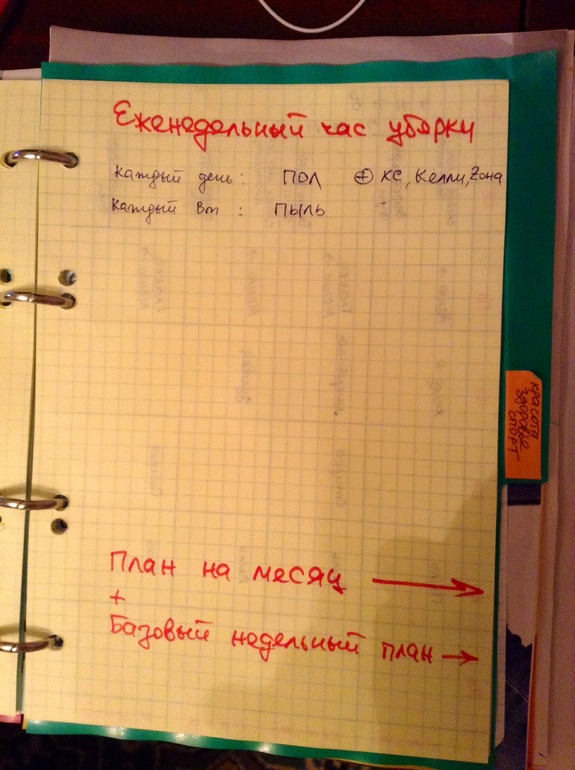 Еженедельный час уборки
Каждый день: ПОЛ ⊕ КС, Келли, Zона
Каждый Вт: ПЫЛЬ
красота
здоровье
спорт
План на месяц →
+
Базовый недельный план →